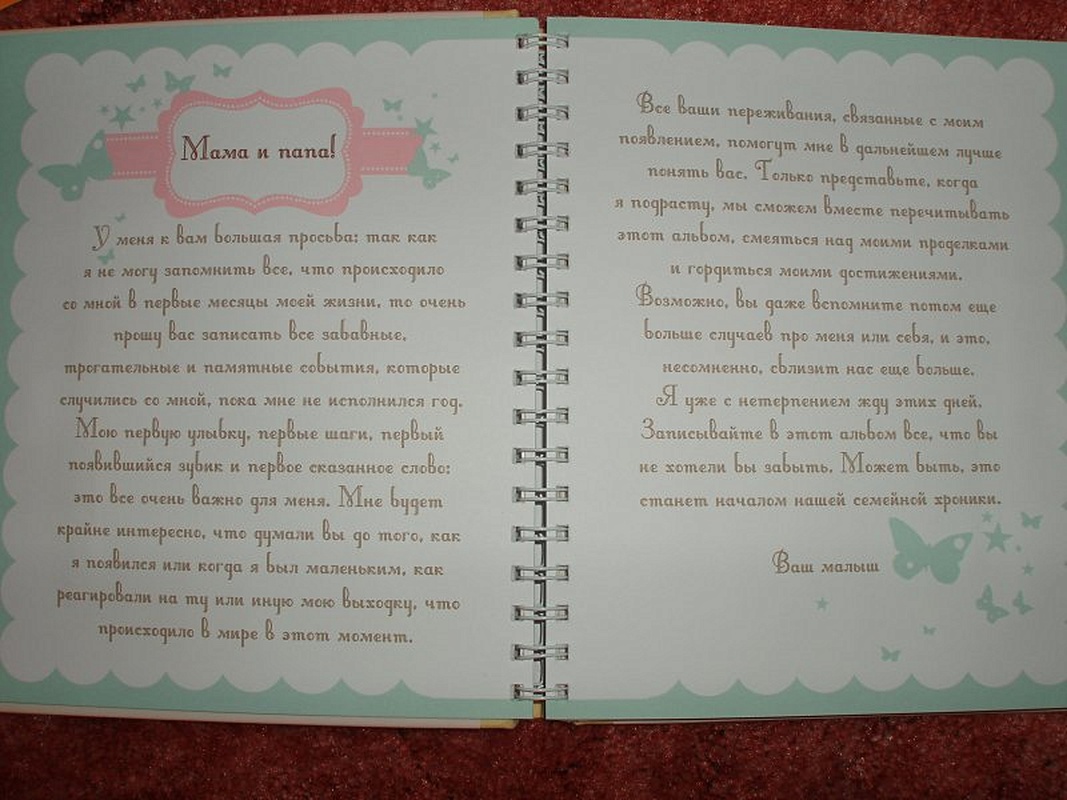 Мама и папа!
У меня к вам большая просьба: так как
я не могу запомнить все, что происходило
со мной в первые месяцы моей жизни, то очень
прошу вас записать все забавные,
трогательные и памятные события, которые
случились со мной, пока мне не исполнился год.
Мою первую улыбку, первые шаги, первый
появившийся зубик и первое сказанное слово:
это все очень важно для меня. Мне будет
крайне интересно, что думали вы до того, как
я появился или когда я был маленьким, как
реагировали на ту или иную мою выходку, что
происходило в мире в этот момент.
Все ваши переживания, связанные с моим
появлением, помогут мне в дальнейшем лучше
понять вас. Только представьте, когда
я подрасту, мы сможем вместе перечитывать
этот альбом, смеяться над моими проделками
и гордиться моими достижениями.
Возможно, вы даже вспомните потом еще
больше случаев про меня или себя, и это,
несомненно, сблизит нас еще больше.
Я уже с нетерпением жду этих дней.
Записывайте в этот альбом все, что вы
не хотели бы забыть. Может быть, это
станет началом нашей семейной хроники.
Ваш малыш